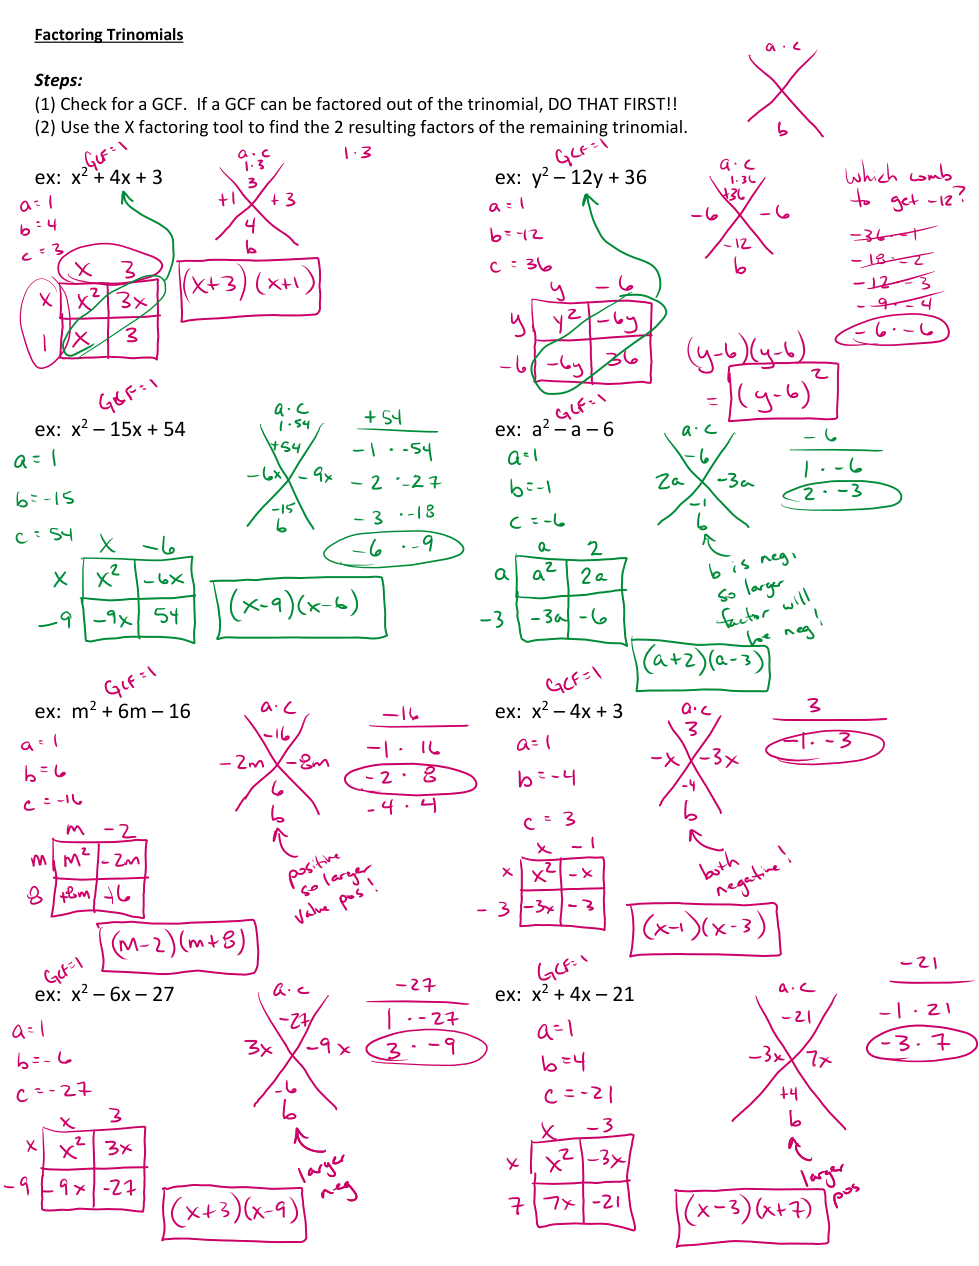 Factoring Trinomials
a · c
b
Steps:
(1) Check for a GCF. If a GCF can be factored out of the trinomial, DO THAT FIRST!!
(2) Use the X factoring tool to find the 2 resulting factors of the remaining trinomial.
GCF=1
ex: x² + 4x + 3
a=1
b=4
c=3
a·c
1·3
3
+1 +3
4
b
1·3
x 3
x x² 3x
1 x 3
(x+3)(x+1)
GCF=1
ex: y² – 12y + 36
a=1
b=-12
c=36
a·c
1·36
+36
-6 -6
-12
b
Which comb
to get -12?
-36·-1
-18·-2
-12·-3
-9·-4
-6·-6
y -6
y y² -6y
-6 -6y 36
(y-6)(y-6)
= (y-6)²
GCF=1
ex: x² – 15x + 54
a=1
b=-15
c=54
a·c
1·54
+54
-6x -9x
-15
b
+54
-1·-54
-2·-27
-3·-18
-6·-9
x -6
x x² -6x
-9 -9x 54
(x-9)(x-6)
GCF=1
ex: a² – a – 6
a=1
b=-1
c=-6
a·c
-6
2a -3a
-1
b
-6
1·-6
2·-3
b is neg,
so larger
factor will
be neg!
a 2
a a² 2a
-3 -3a -6
(a+2)(a-3)
GCF=1
ex: m² + 6m – 16
a=1
b=6
c=-16
a·c
-16
-2m -8m
6
b
-16
-1·16
-2·8
-4·4
positive
so larger
value pos!
m -2
m m² -2m
8 +8m +6
(m-2)(m+8)
GCF=1
ex: x² – 4x + 3
a=1
b=-4
c=3
a·c
3
-x -3x
-4
b
3
-1·-3
both
negative!
x -1
x x² -x
-3 -3x -3
(x-1)(x-3)
GCF=1
ex: x² – 6x – 27
a=1
b=-6
c=-27
a·c
-27
3x -9x
-6
b
-27
1·-27
3·-9
larger
neg
x 3
x x² 3x
-9 -9x -27
(x+3)(x-9)
GCF=1
ex: x² + 4x – 21
a=1
b=4
c=-21
a·c
-21
-3x 7x
+4
b
-21
-1·21
-3·7
larger
pos
x -3
x x² -3x
7 7x -21
(x-3)(x+7)